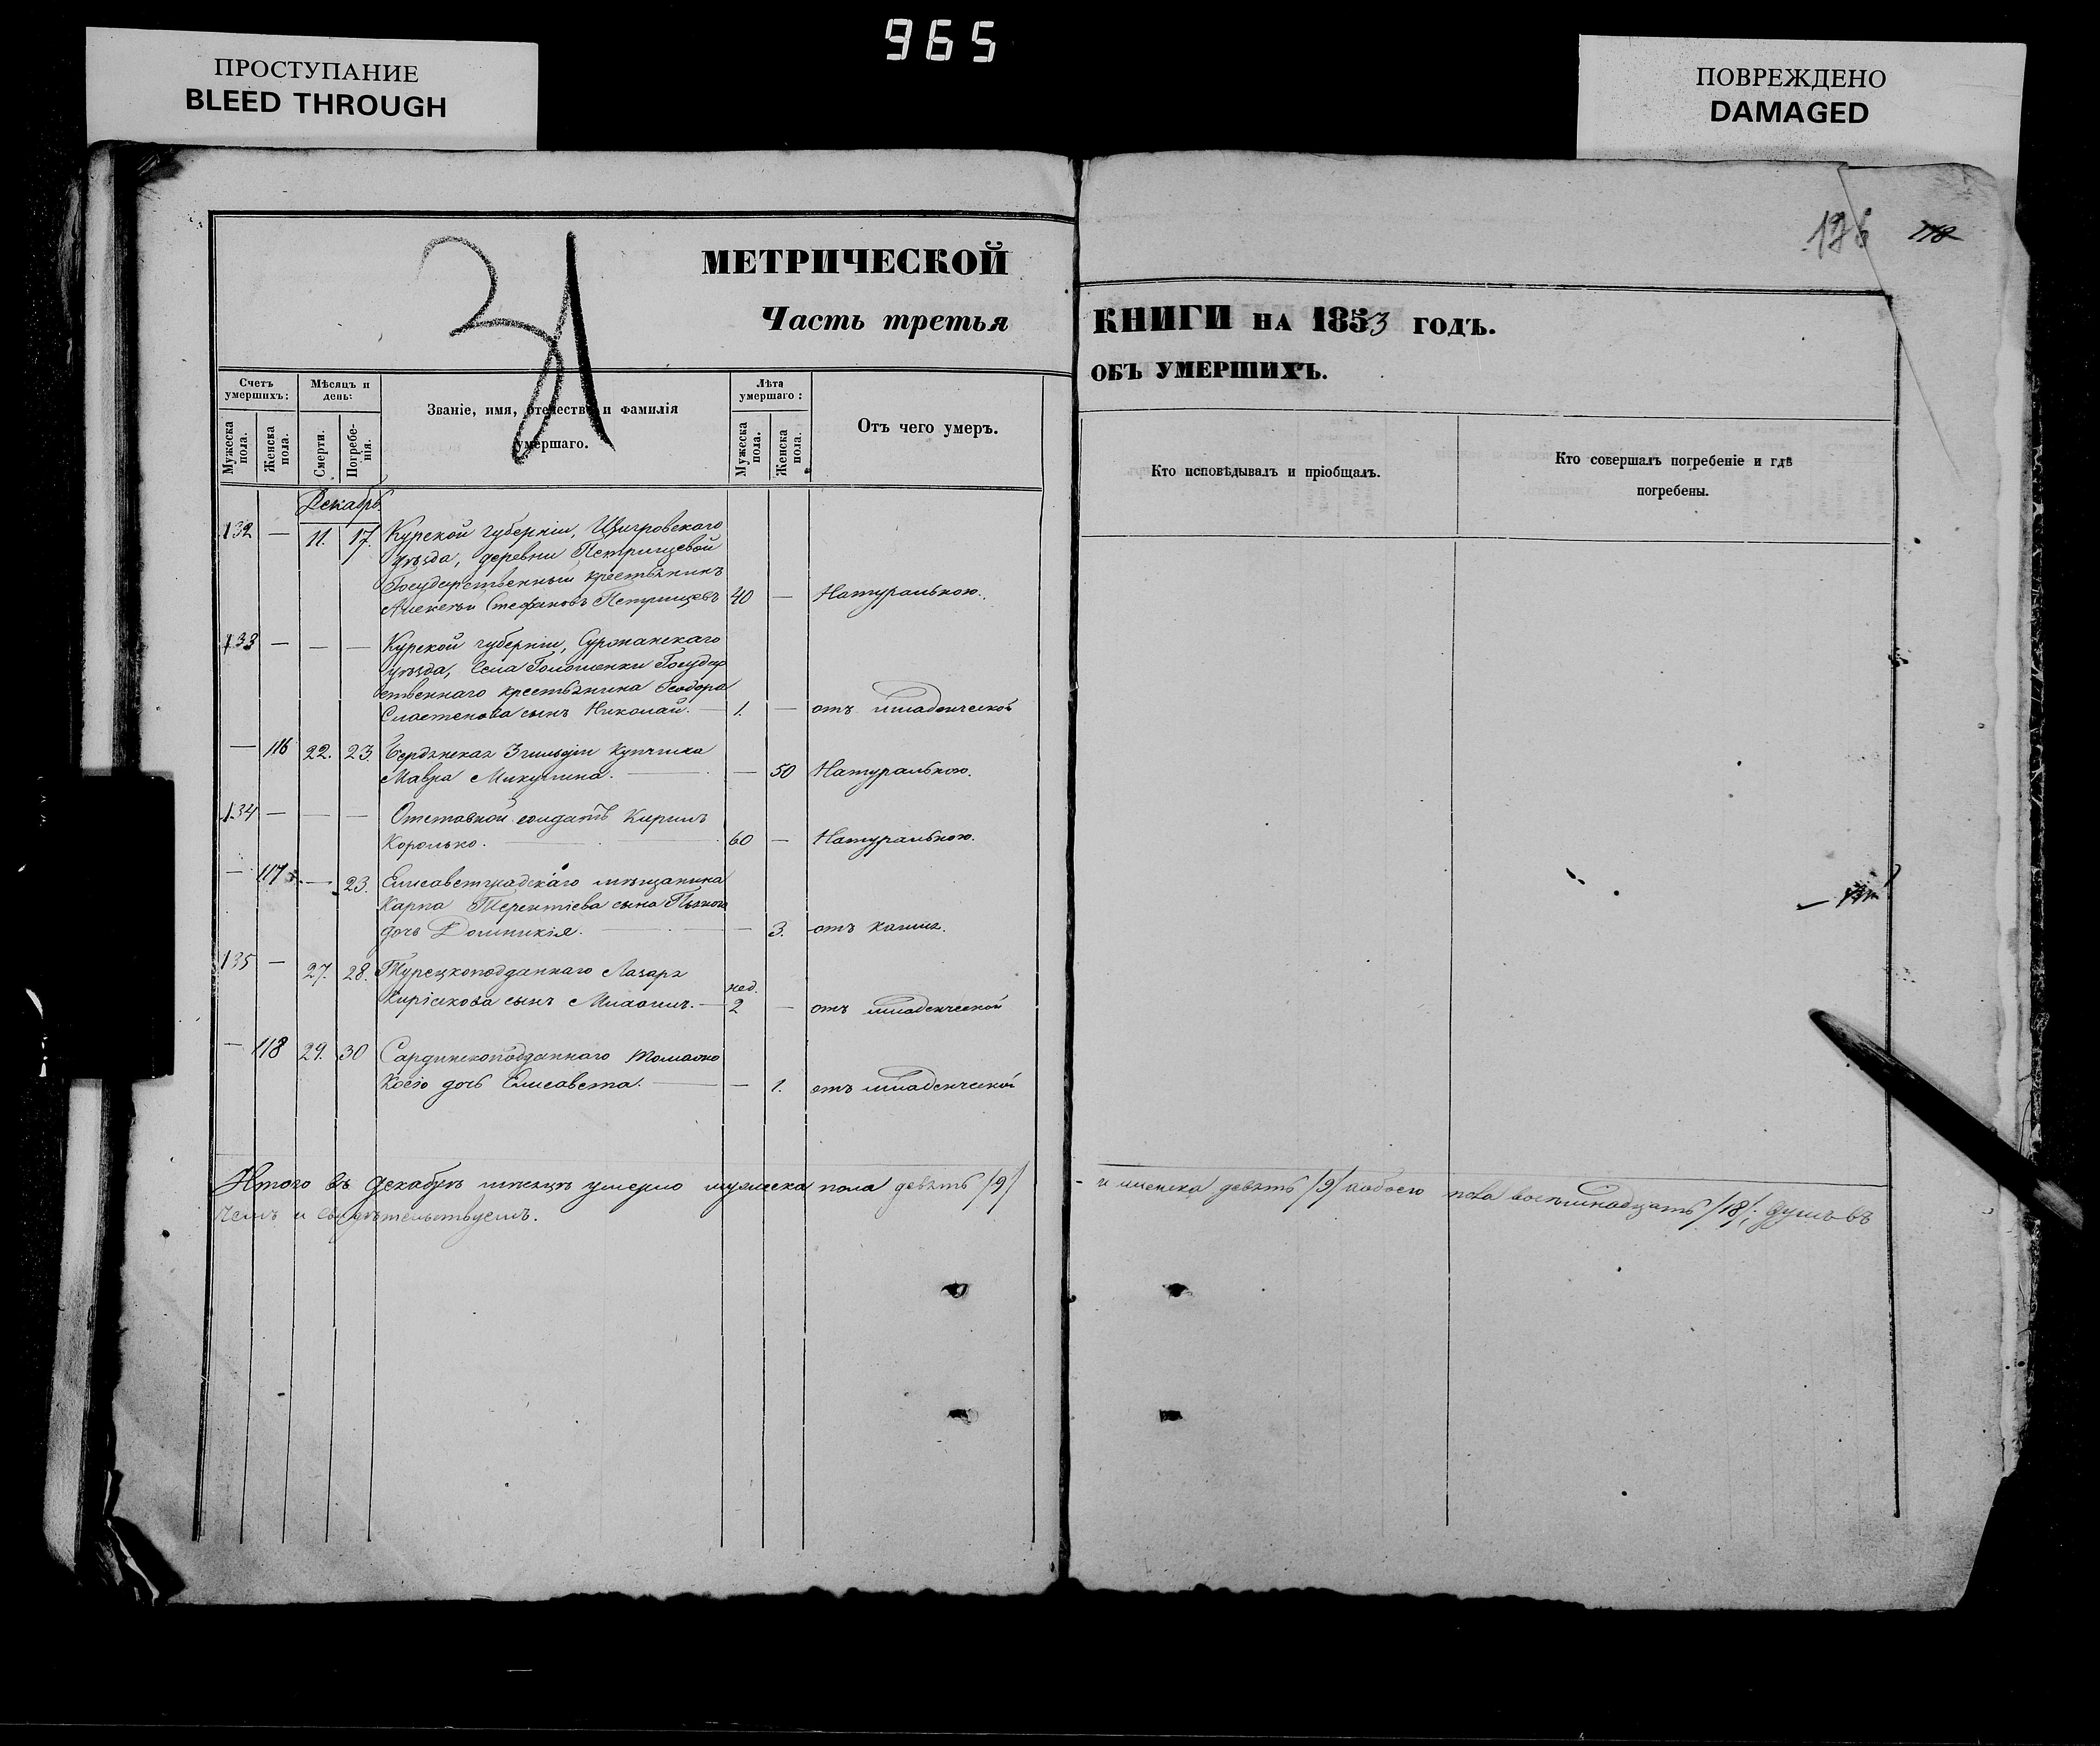 965
ПРОСТУПАНИЕ
BLEED THROUGH
ПОВРЕЖДЕНО
DAMAGED
31
118
МЕТРИЧЕСКОЙ
Часть третья
Счетъ умершихъ:
Мужеска пола.
Женска пола.
Мѣсяцъ и день:
Смерти.
Погребенія.
Званіе, имя, отечество и фамилія
умершаго.
Лѣта умершаго:
Мужеска пола.
Женска пола.
Отъ чего умеръ.
КНИГИ НА 1853 ГОДЪ.
ОБЪ УМЕРШИХЪ.
Кто исповѣдывалъ и пріобщалъ.
Кто совершалъ погребеніе и гдѣ
погребены.
Декабрь
132 — 11. 17. Курской губерніи, Щигровскаго
уѣзда, деревни Петрищевой
Государственный крестьянинъ
Алексѣй Стефановъ Петрищевъ 40 — Натуральною.
133 — — — Курской губерніи, Суджанскаго
уѣзда, села Государ
ственнаго крестьянина Ѳеодора
Сластенова сынъ Николай. — 1. — отъ младенческой
— 116 22. 23. Бердянская 3 гильдіи купчиха
Мавра Микулина. — — 50 Натуральною.
134 — — — Отставной солдатъ Кирилъ
Королько. 60 — Натуральною.
— 117 — 23. Елисаветградскаго мѣщанина
Карпа Терентіева сына
дочь Домникія. — — 3. отъ кашля.
135 — 27. 28. Турецкоподданнаго Лазаря
нед.
сынъ Михаилъ. — 2 — отъ младенческой
— 118 29. 30 Сардинскоподданнаго Томазо
Косіо дочь Елисавета. — — 1. отъ младенческой
Итого въ Декабрѣ мѣсяцѣ умерло мужеска пола девять /9/
- и женска девять /9/ а обоего пола восемнадцать /18/ душъ въ
чемъ и свидѣтельствуемъ.